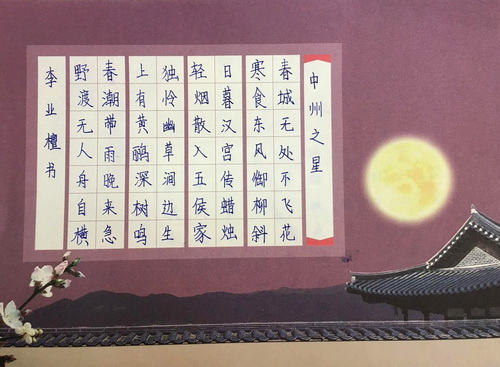 中州之星
春城无处不飞花
寒食东风御柳斜
日暮汉宫传蜡烛
轻烟散入五侯家
独怜幽草涧边生
上有黄鹂深树鸣
春潮带雨晚来急
野渡无人舟自横
李业檀书